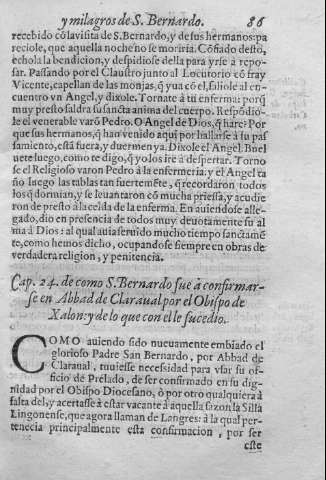 y milagros de S. Bernardo. 86
recebido cõ la visita de S. Bernardo, y de sus hermanos: pa
reciole, que aquella noche no se moriria. Cõfiado desto,
echola la bendicion, y despidiose della para yrse à repo-
sar. Passando por el Claustro junto al Locutorio cõ fray
Vicente, capellan de las monjas, q̃ yua cõ el, saliole al en-
cuentro vn Angel, y dixole. Tornate à tu enferma: porq̃
muy presto saldra su sancta anima del cuerpo. Respõdio-
le el venerable varõ Pedro. O Angel de Dios, q̃ hare: Por
que sus hermanos, q̃ han venido aqui por hallarse à su pas
samiento, està fuera, y duermen ya. Dixole el Angel. Buel
uete luego, como te digo, q̃ yo los irè à despertar. Torno
se el Religioso varon Pedro à la enfermeria: y el Angel ta
ño luego las tablas tan fuertemẽte, q̃ recordaron todos
los q̃ dormian, y se leuantaron cõ mucha priessa, y acudie
ron de presto à la celda de la enferma. En auiendose alle-
gado, dio en presencia de todos muy deuotamente su al
ma à Dios: al qual auia seruido mucho tiempo sanctamẽ
te, como hemos dicho, ocupandose siempre en obras de
verdadera religion, y penitencia.
Cap. 24. de como S. Bernardo fue à confirmar-
se en Abbad de Claraual por el Obispo de
Xalon: y de lo que con el le sucedio.
COMO auiendo sido nueuamente embiado el
glorioso Padre San Bernardo, por Abbad de
Claraual, tuuiesse necessidad para vsar su of-
ficio de Prelado, de ser confirmado en su dig-
nidad por el Obispo Diocesano, ò por otro qualquiera à
falta del, y acertasse à estar vacante à aquella sazon la Silla
Lingonense, que agora llaman de Langres: à la qual per-
tenecia principalmente esta confirmacion, por ser
este